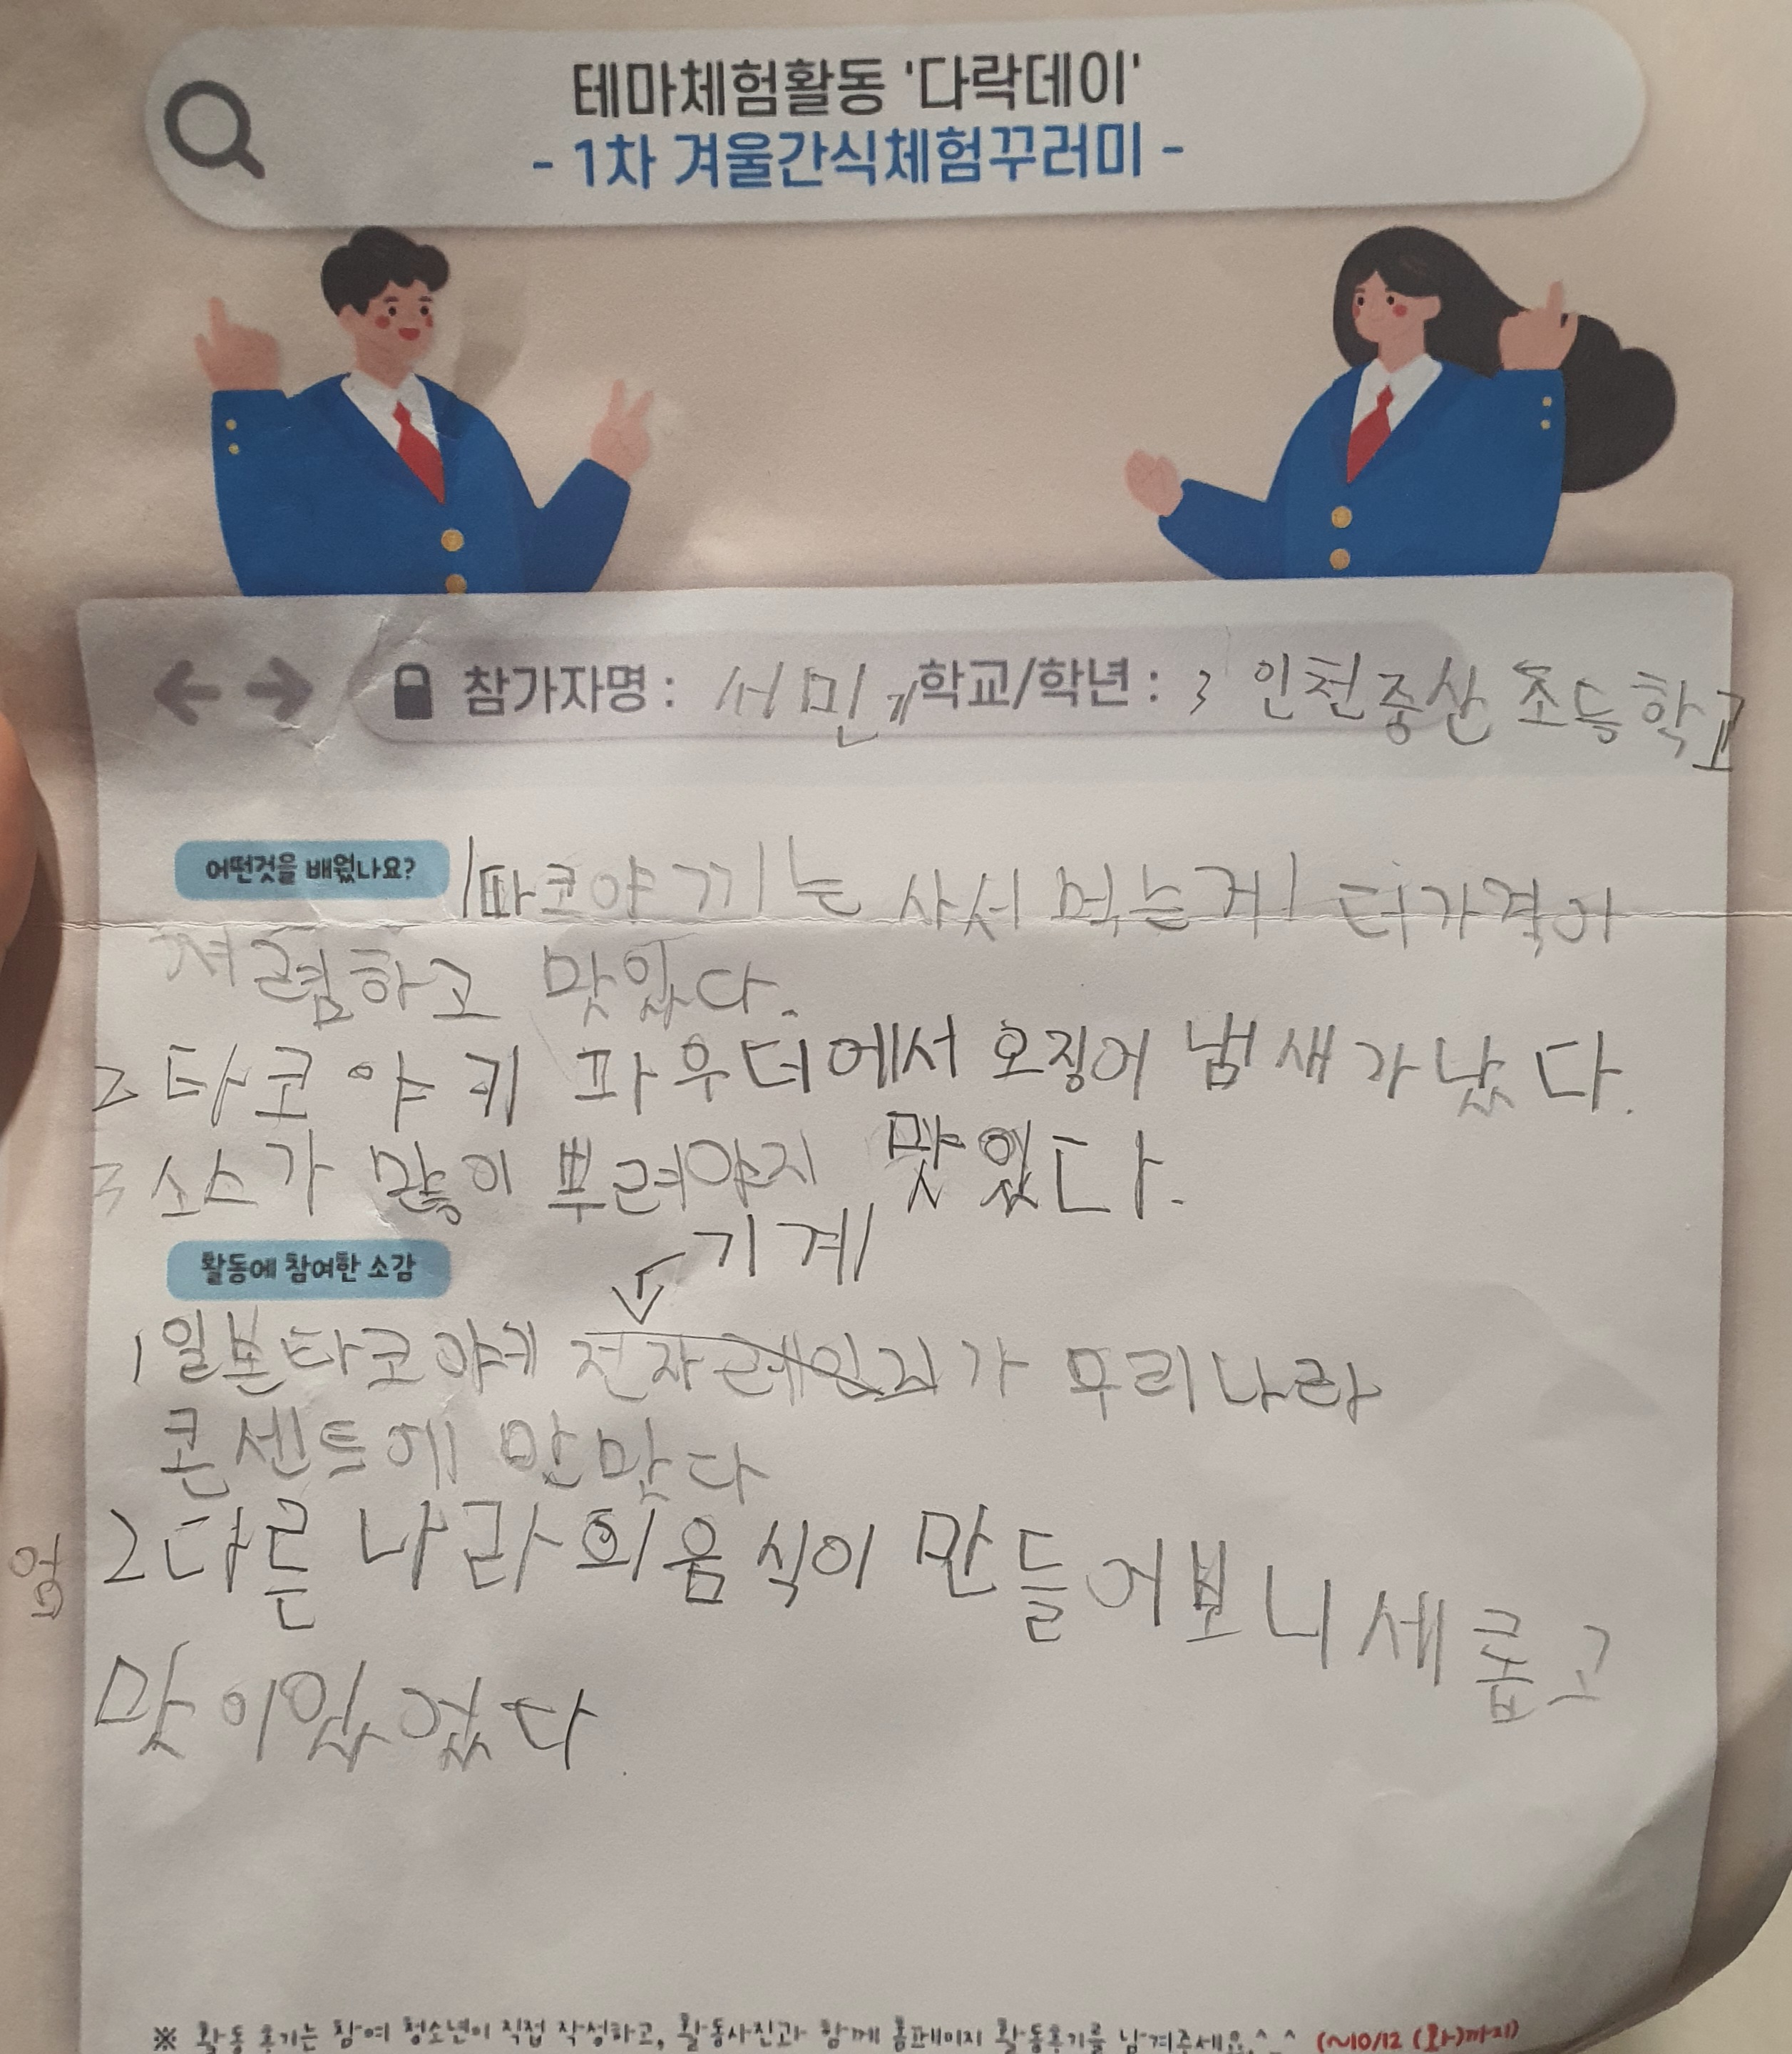 테마체험활동 '다락데이'
- 1차 겨울간식체험꾸러미 -
참가자명 : 서민 학교/학년 : 3 인천중산초등학교
어떤것을 배웠나요? 1 따코야끼는 사서 먹는게 더가격이
저렴하고 맛있다.
2 타코야키 파우더에서 오징어 냄새가 났다.
3 소스가 많이 뿌려야지 맛있다.
기계
활동에 참여한 소감
1 일본타코야게 전자레인지가 우리나라
콘센트에 안맞다
2 다른 나라의 음식이 만들어보니 세롭고
맛이있었다
※ 활동 후기는 참여 청소년이 직접 작성하고, 활동사진과 함께 홈페이지 활동후기를 남겨주세요.^_^ (~10/12 (화)까지)